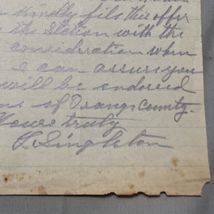 kindly file this offer
the station with the
consideration when
I can assure you
will be endorsed
of Orange County.
Yours truly
Singleton